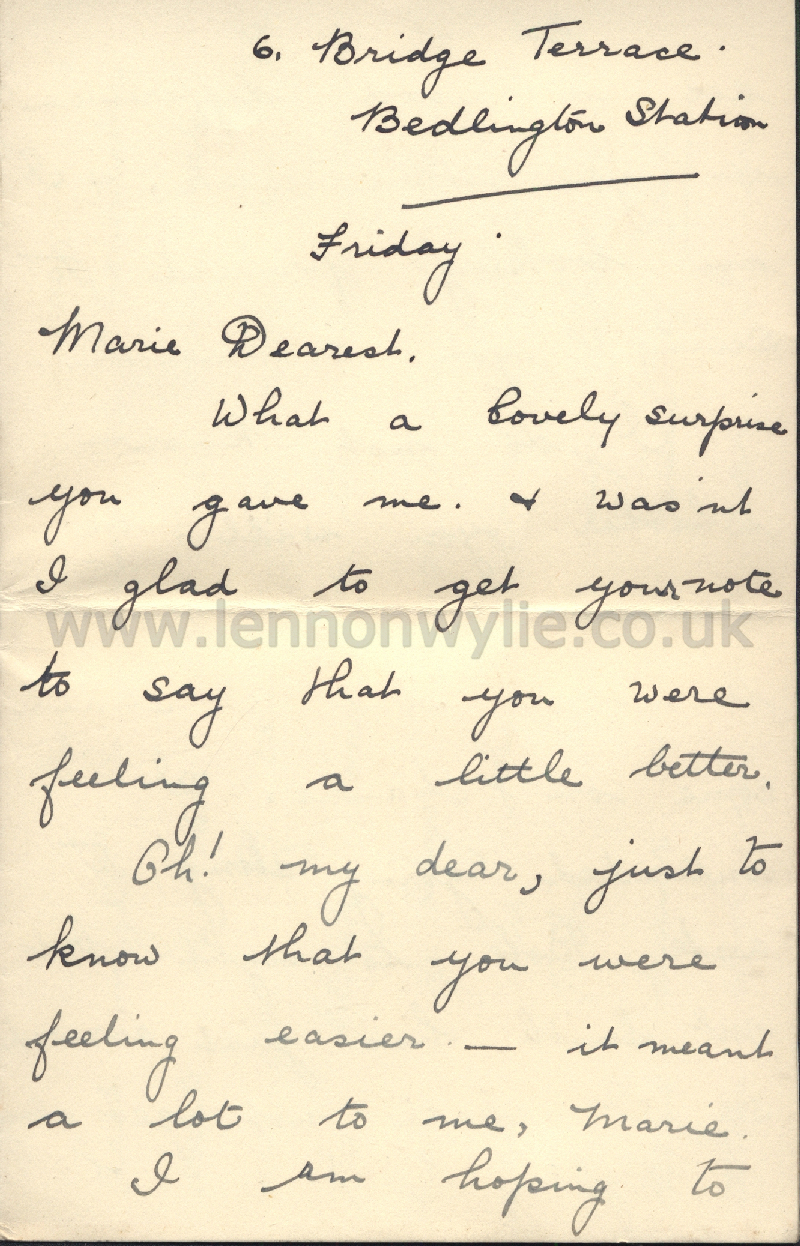 6. Bridge Terrace.
Bedlington Station
Friday.
Marie Dearest.
What a lovely surprise
you gave me. & was'nt
I glad to get your note
www.lennonwylie.co.uk
to say that you were
feeling a little better.
Oh! my dear, just to
know that you were
feeling easier. — it meant
a lot to me, Marie.
I am hoping to